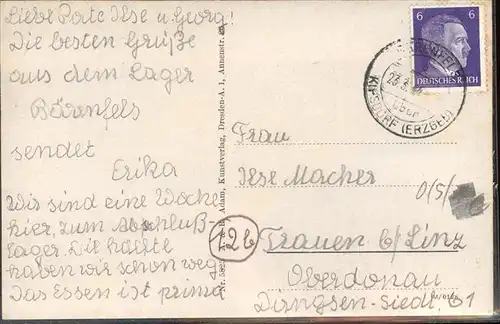 Liebe Pate Ilse u. Georg!
Die besten Grüße
aus dem Lager
Bärenfels
sendet
Erika
Wir sind eine Woche
hier, zum Abschluß-
lager. Die hälfte
haben wir schon weg.
Das Essen ist prima
Adam, Kunstverlag, Dresden-A. 1, Annenstr.
6 6
DEUTSCHES REICH
über
KIPSDORF (ERZGEB.)
Frau
Ilse Macher
12b
Trauen b/Linz
Oberdonau
Siedl. 61